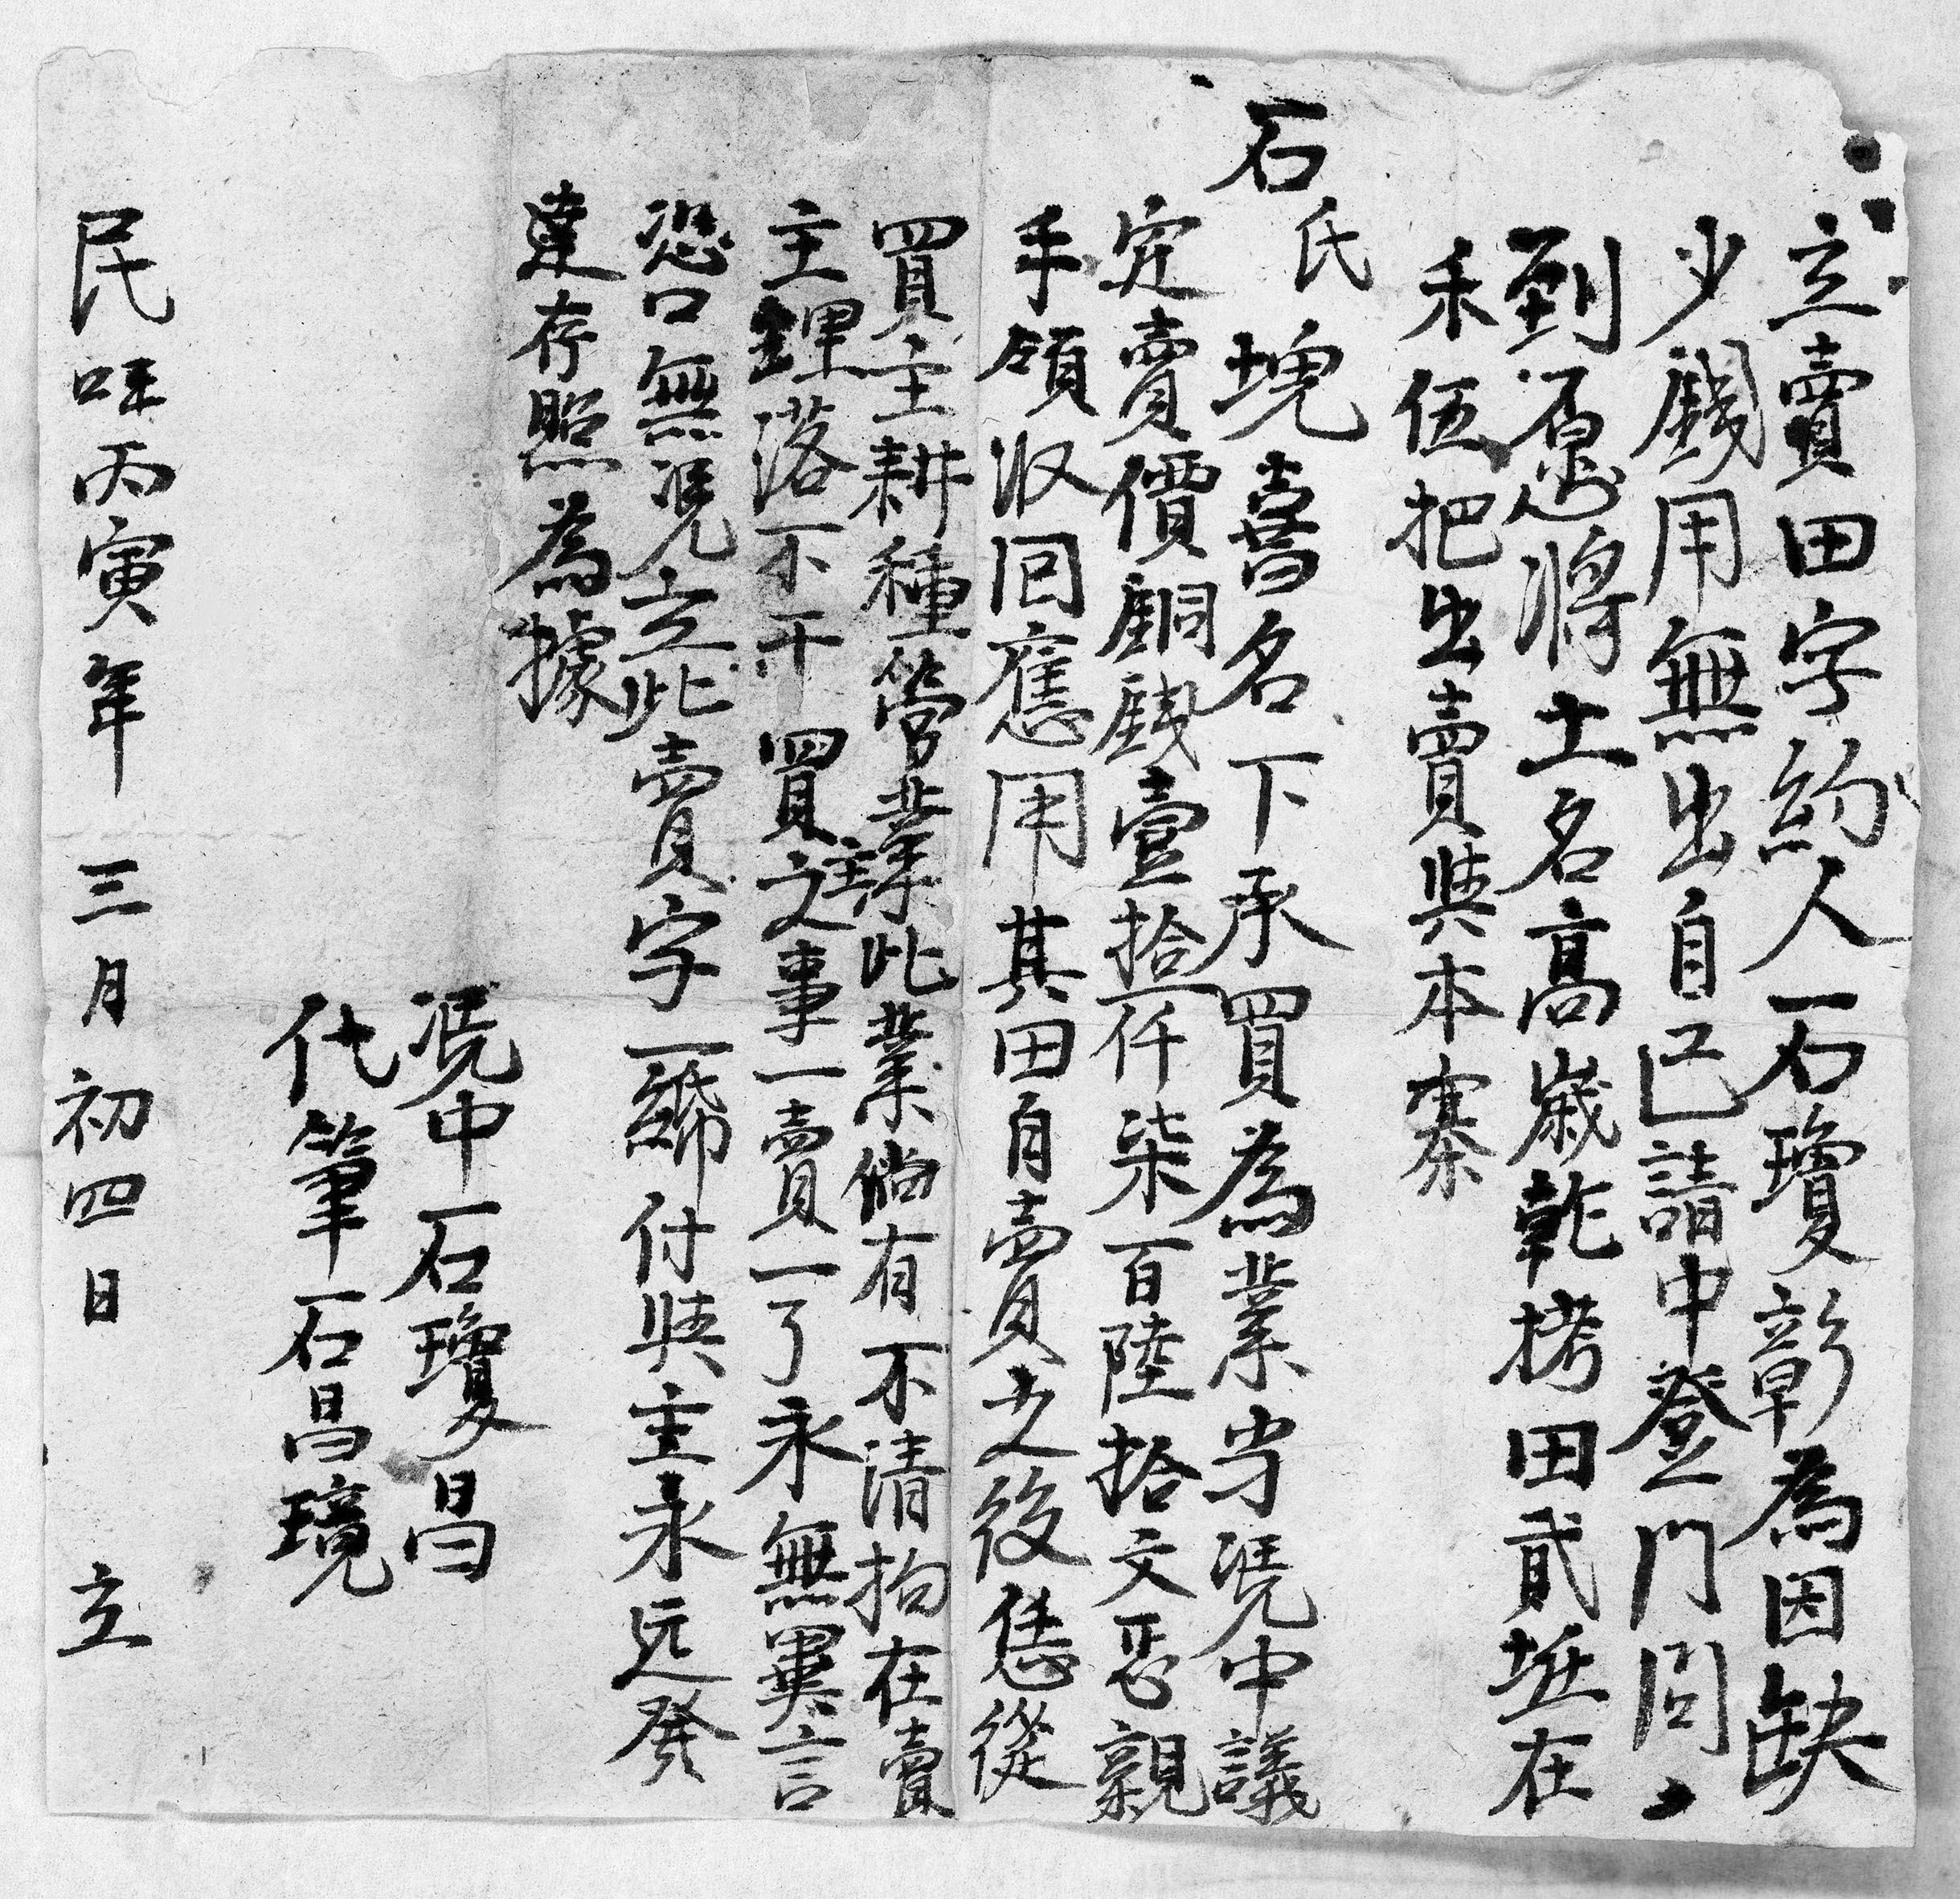 立賣田字約人石瓊彰為因缺
少錢用無出自己請中登門問
到愿將土名高嵗乾拷田貳坵在
禾伍把出賣與本寨
石氏塊喜名下承買為業当凴中議
定賣價銅錢壹拾仟柒百陸拾文恶親
手領収囘應用其田自賣之後恁從
買主耕種管業此業倘有不清拘在賣
主理落不干買主之事一賣一了永無異言
恐口無凴立此賣字一紙付與主永远發
達存照為據
凴中石瓊昌
代筆石昌璄
民国丙寅年三月初四日立